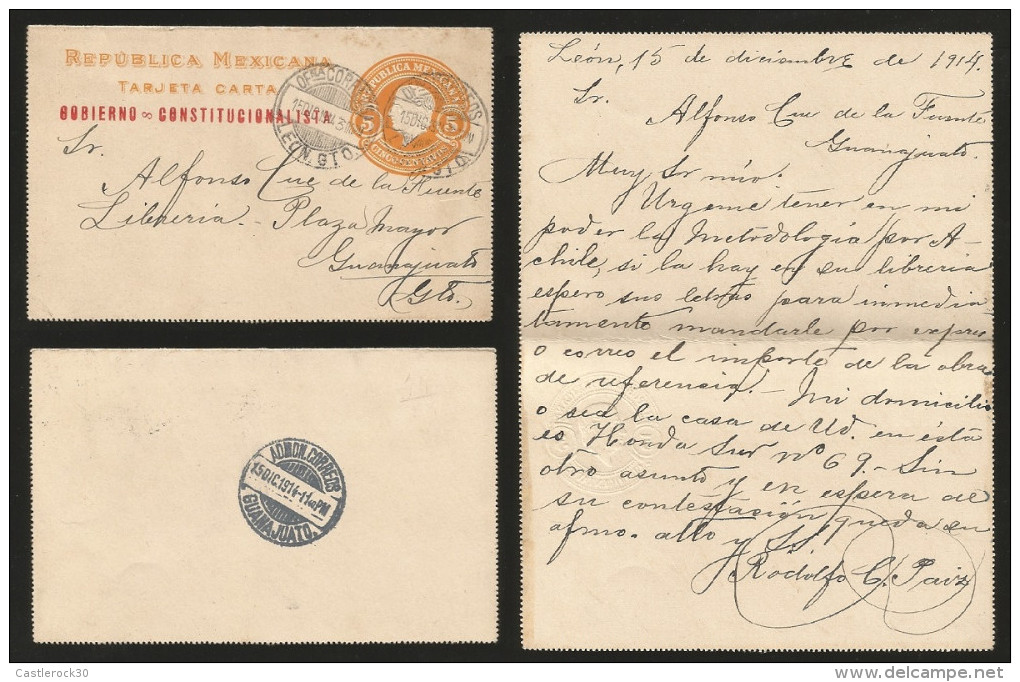 REPÚBLICA MEXICANA
TARJETA CARTA
GOBIERNO ∞ CONSTITUCIONALISTA
REPUBLICA MEXICANA
5 5
CINCO CENTAVOS
LEON GTO.
Sr.
Alfonso Cue de la Fuente
Librería - Plaza Mayor
Guanajuato
Gto.
ADMON. CORREOS
15 DIC. 1914 - 11 PM
GUANAJUATO.
León, 15 de diciembre de 1914.
Sr.
Alfonso Cue de la Fuente
Guanajuato.
Muy Sr mío.
Urgeme tener en mi
poder la Metodología por A-
chile, si la hay en su librería
espero sus letras para inmedia
tamente mandarle por expres
o correo el importe de la obra
de referencia. - Mi domicilio
o sea la casa de Ud. en ésta
es Honda Sur nº 69. - Sin
otro asunto y en espera de
su contestación queda su
afmo. atto y SS.
Rodolfo C. Paiz
Castlerock30
www.delcampe.net